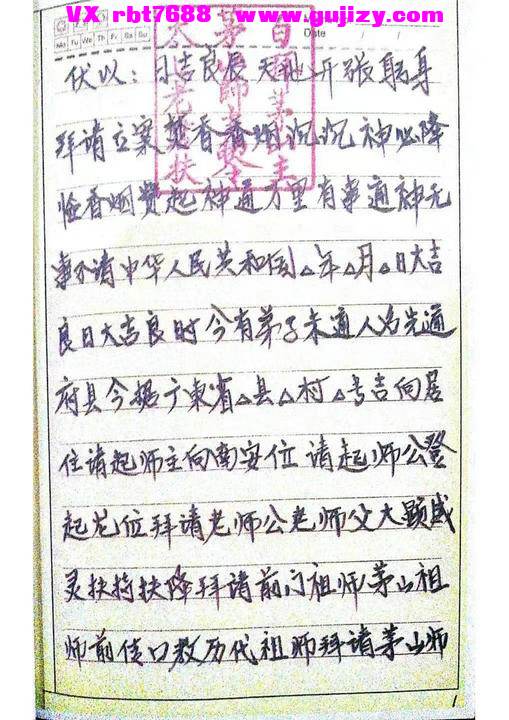 VX rbt7688 www.gujizy.com
Mo Tu We Th Fr Sa Su Date / /
伏以：日吉良辰天地开张躬身
拜请立案焚香香烟沉沉神必降
临香烟赞起神通万里有事通神无
事不请中华人民共和国△年△月△日大吉
良日大吉良时今有弟子未通人名先通
府县今据广东省△县△村△号吉向居
住请起师主向南安位请起师公登
起龙位拜请老师公老师父大显威
灵扶持扶降拜请前门祖师茅山祖
师前传口教历代祖师拜请茅山师
1